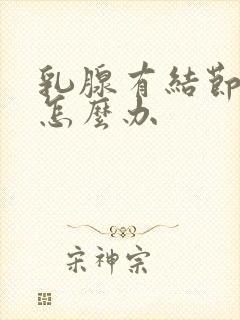 乳腺有結節
怎麼办
宋神宗